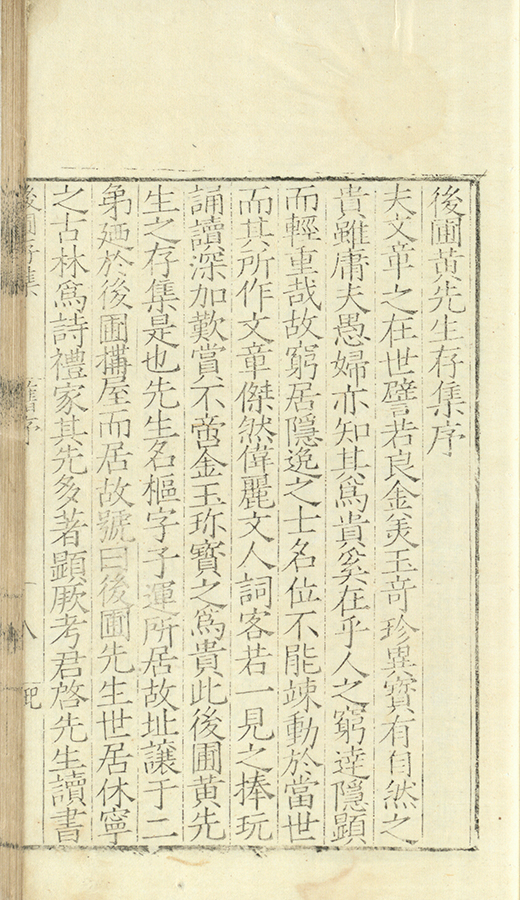 後圃黃先生存集序
夫文章之在世譬若良金美玉奇珍異寳有自然之
貴雖庸夫愚婦亦知其爲貴奚在乎人之窮達隱顕
而輕重哉故窮居隱逸之士名位不能竦動於當世
而其所作文章傑然偉麗文人詞客若一見之捧玩
誦讀深加歎賞不啻金玉珎寳之爲貴此後圃黃先
生之存集是也先生名樞字子運所居故址讓于二
弟廼於後圃搆屋而居故號曰後圃先生世居休寧
之古林爲詩禮家其先多著顕厥考君啓先生讀書
後圃存集 舊序 八